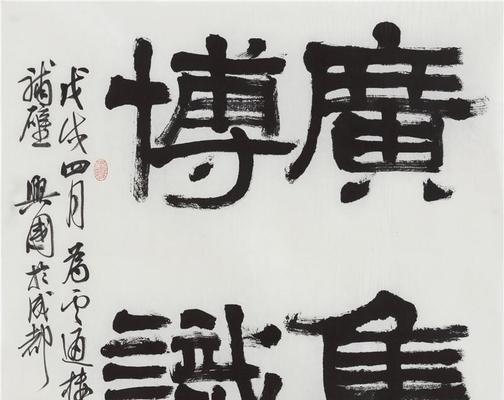 廣
博識
戊戌四月為云通
補壁 興國於成都